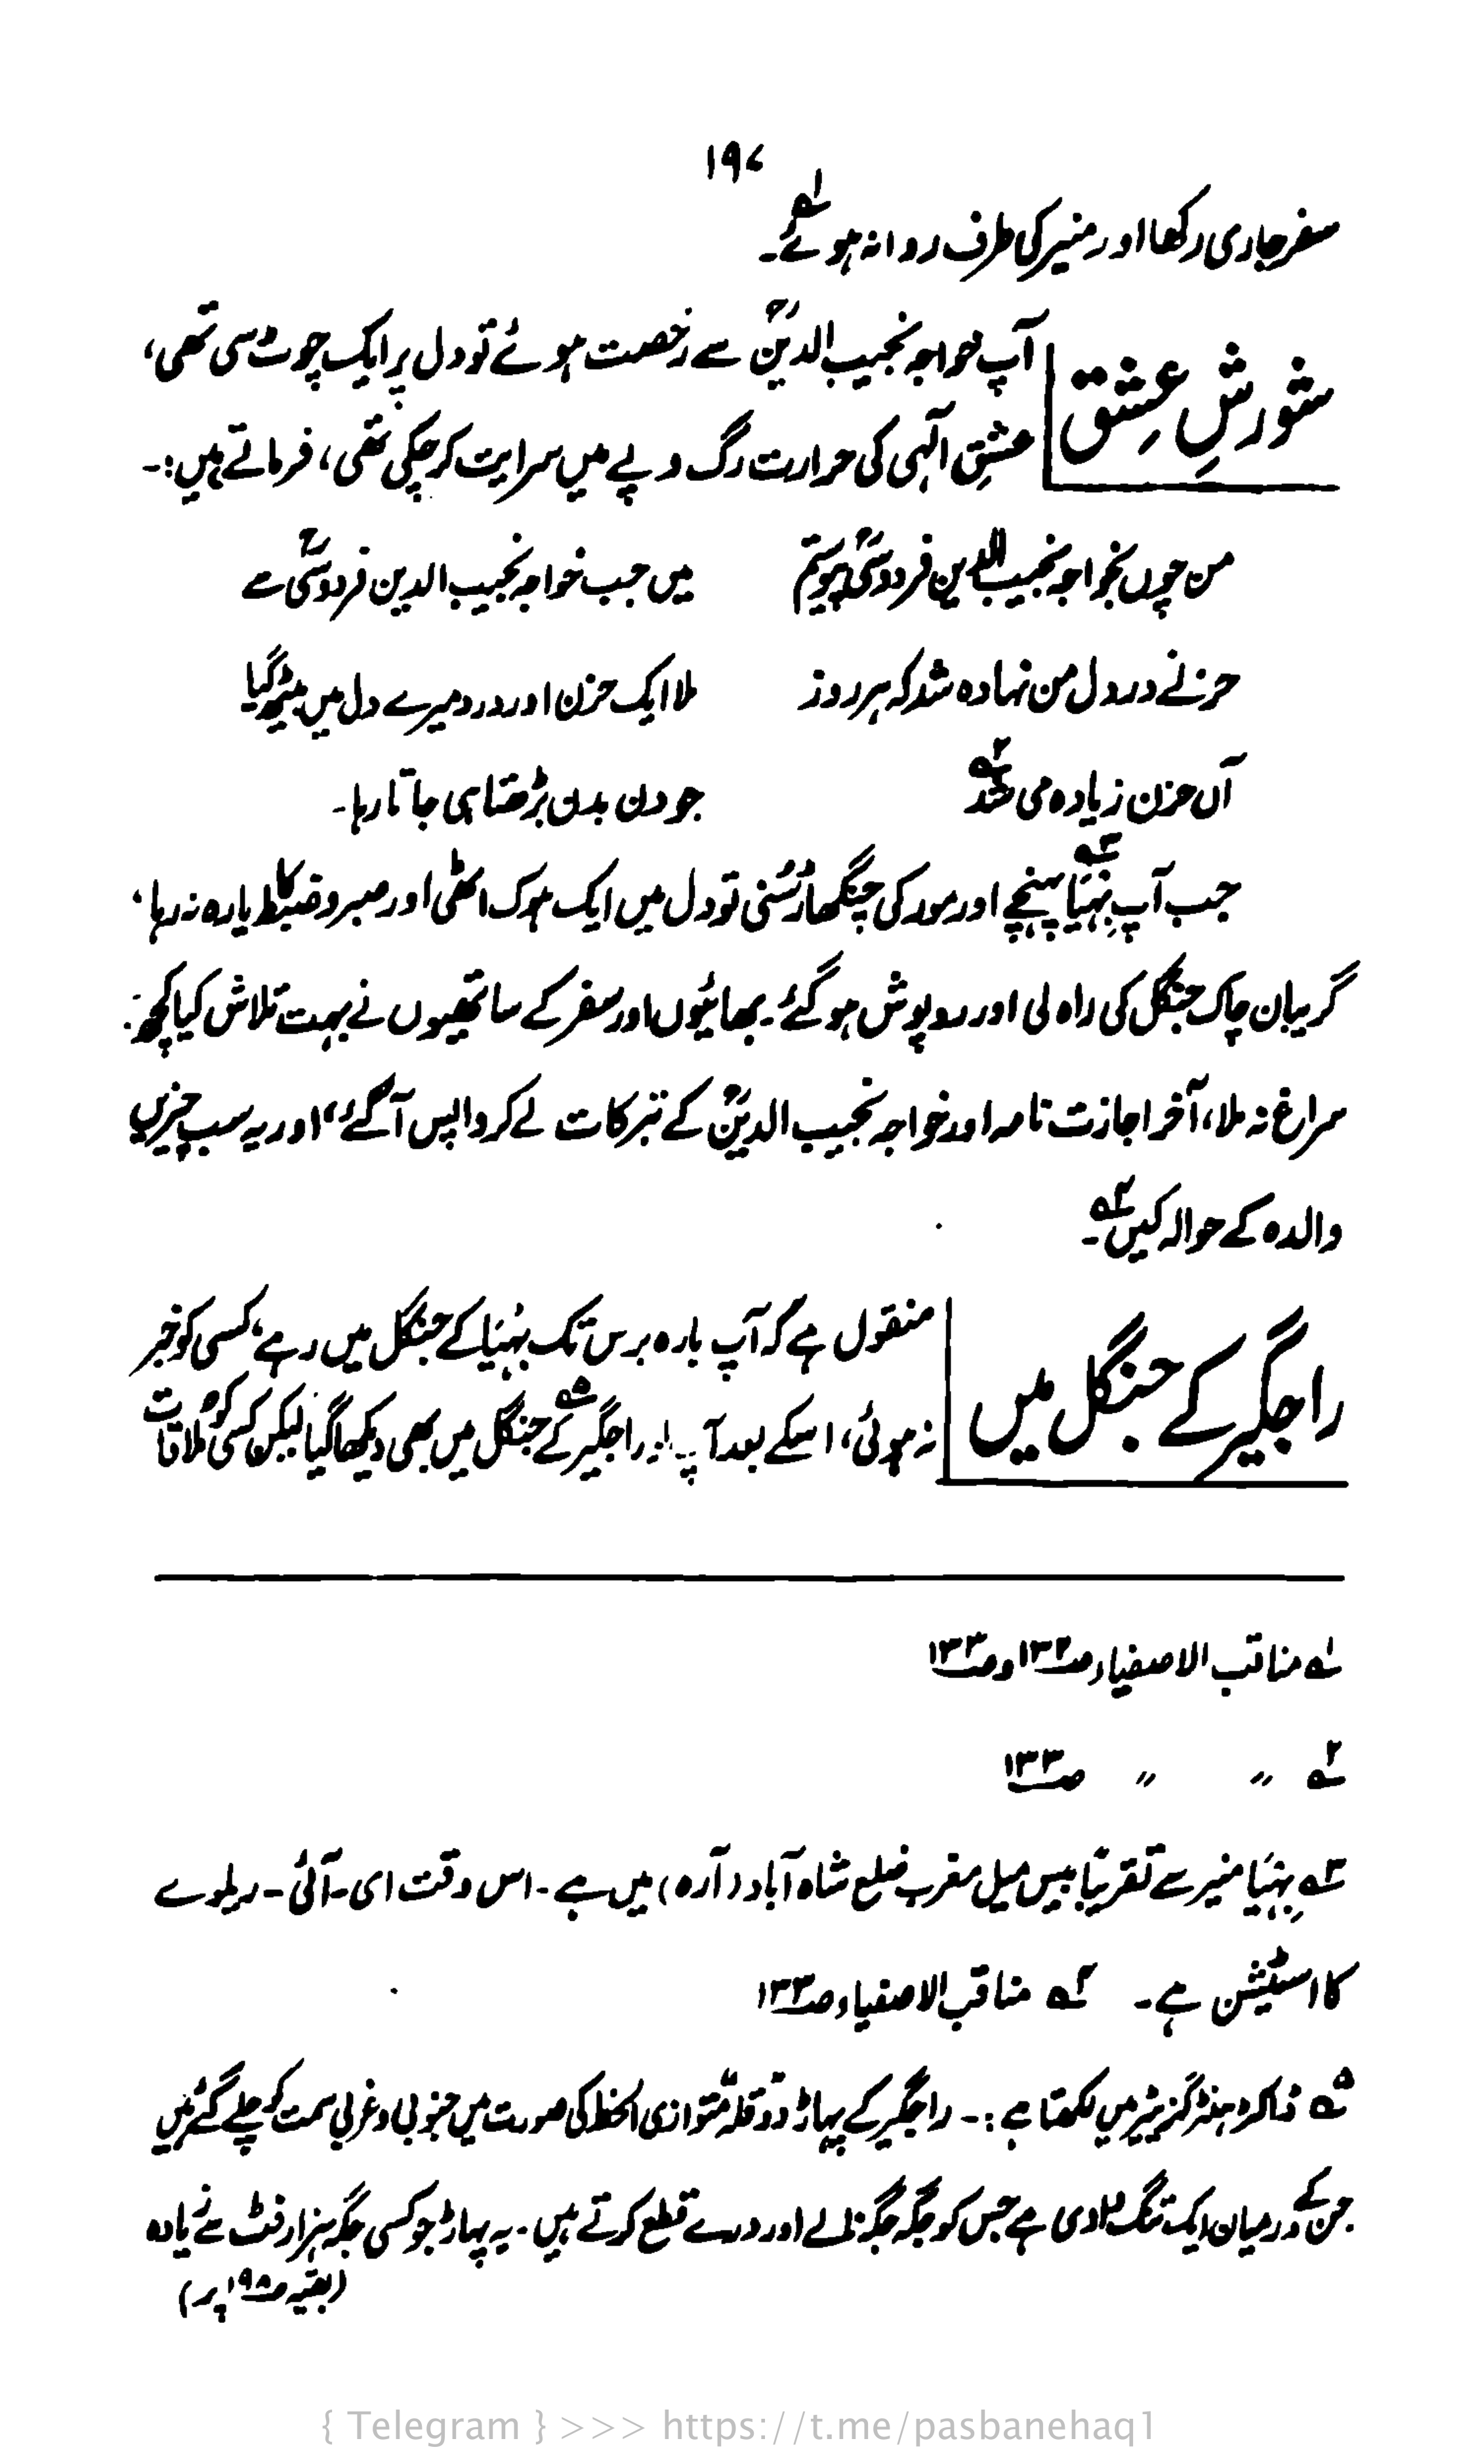 ۱۹۷
سفر جاری رکھا اور منیر کی طرف روانہ ہوئے۱؎۔
شورشِ عشق
آپ خواجہ نجیب الدینؒ سے رخصت ہوئے تو دل پر ایک چوٹ سی تھی،
عشقِ الٰہی کی حرارت رگ و پے میں سرایت کر چکی تھی، فرماتے ہیں:۔
من چوں بخواجہ نجیب الدین فردوسیؒ پیوستم
میں جب خواجہ نجیب الدین فردوسیؒ سے
حزنے در دل من نہادہ شد کہ ہر روز
ملا ایک حزن اور درد میرے دل میں بیٹھ گیا
آں حزن زیادہ می شد۲؎
جو دن بدن بڑھتا ہی جاتا رہا۔
جب آپ بِہْیَا۳؎ پہنچے اور مور کی چنگھاڑ سُنی تو دل میں ایک ہوک اٹھی اور صبر و ضبط کا یارہ نہ رہا،
گریبان چاک جنگل کی راہ لی اور روپوش ہو گئے۔ بھائیوں اور سفر کے ساتھیوں نے بہت تلاش کیا کچھ
سراغ نہ ملا، آخر اجازت نامہ اور خواجہ نجیب الدینؒ کے تبرکات لے کر واپس آگئے، اور یہ سب چیزیں
والدہ کے حوالہ کیں۴؎۔
راجگیر کے جنگل میں
منقول ہے کہ آپ بارہ برس تک بہْیَا کے جنگل میں رہے، کسی کو خبر
نہ ہوئی، اسکے بعد آپ کو راجگیر۵؎ کے جنگل میں بھی دیکھا گیا لیکن کسی کو ملاقات
۱؎ مناقب الاصفیاء ص۱۳۲ و ص۱۳۳
۲؎ 〃 〃 ص۱۳۳
۳؎ بِہْیَا منیر سے تقریبًا بیس میل مغرب ضلع شاہ آباد (آرہ) میں ہے۔ اس وقت ای۔آئی۔ ریلوے
کا اسٹیشن ہے۔ ۴؎ مناقب الاصفیاء ص۱۳۳
۵؎ ڈاکٹر ہنٹر گزیٹیر میں لکھتا ہے:۔ راجگیر کے پہاڑ دو قلہ متوازی الخط کی صورت میں جنوبی و غربی سمت کو چلے گئے ہیں
جن کے درمیان ایک تنگ وادی ہے جس کو جگہ جگہ نالے اور درے قطع کرتے ہیں۔ یہ پہاڑ جو کسی جگہ ہزار فٹ سے زیادہ
(بقیہ ص۱۹۸ پر)
{ Telegram } >>> https://t.me/pasbanehaq1